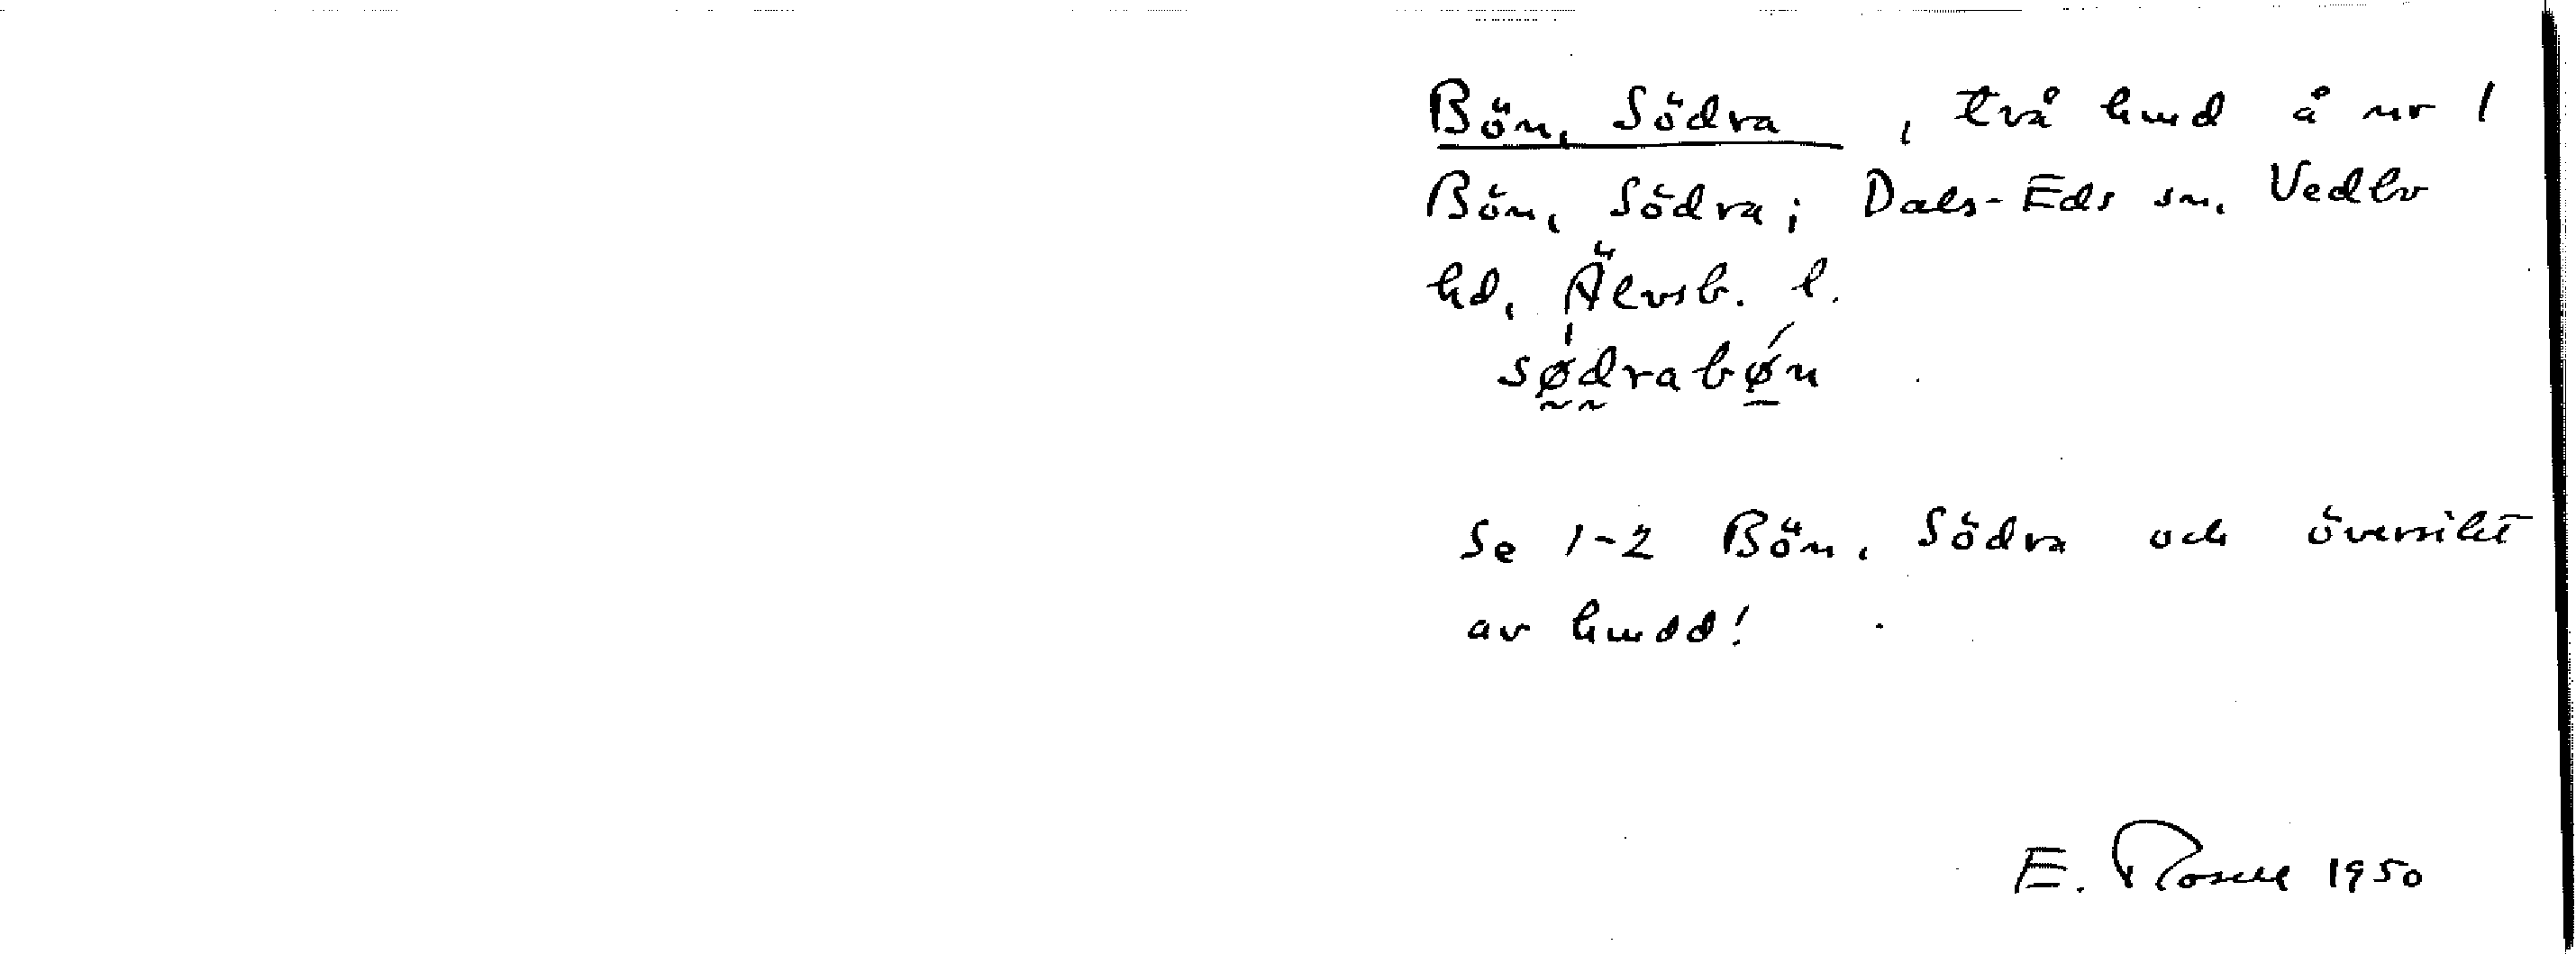 Bön, Södra, två hmd å nr 1
Bön, Södra; Dals-Eds sn, Vedbo
hd, Älvsb. l.
sǿ̰d̰rabǿ̱n
Se 1-2 Bön, Södra och översikt
av hmdd!
E. Rosell 1950